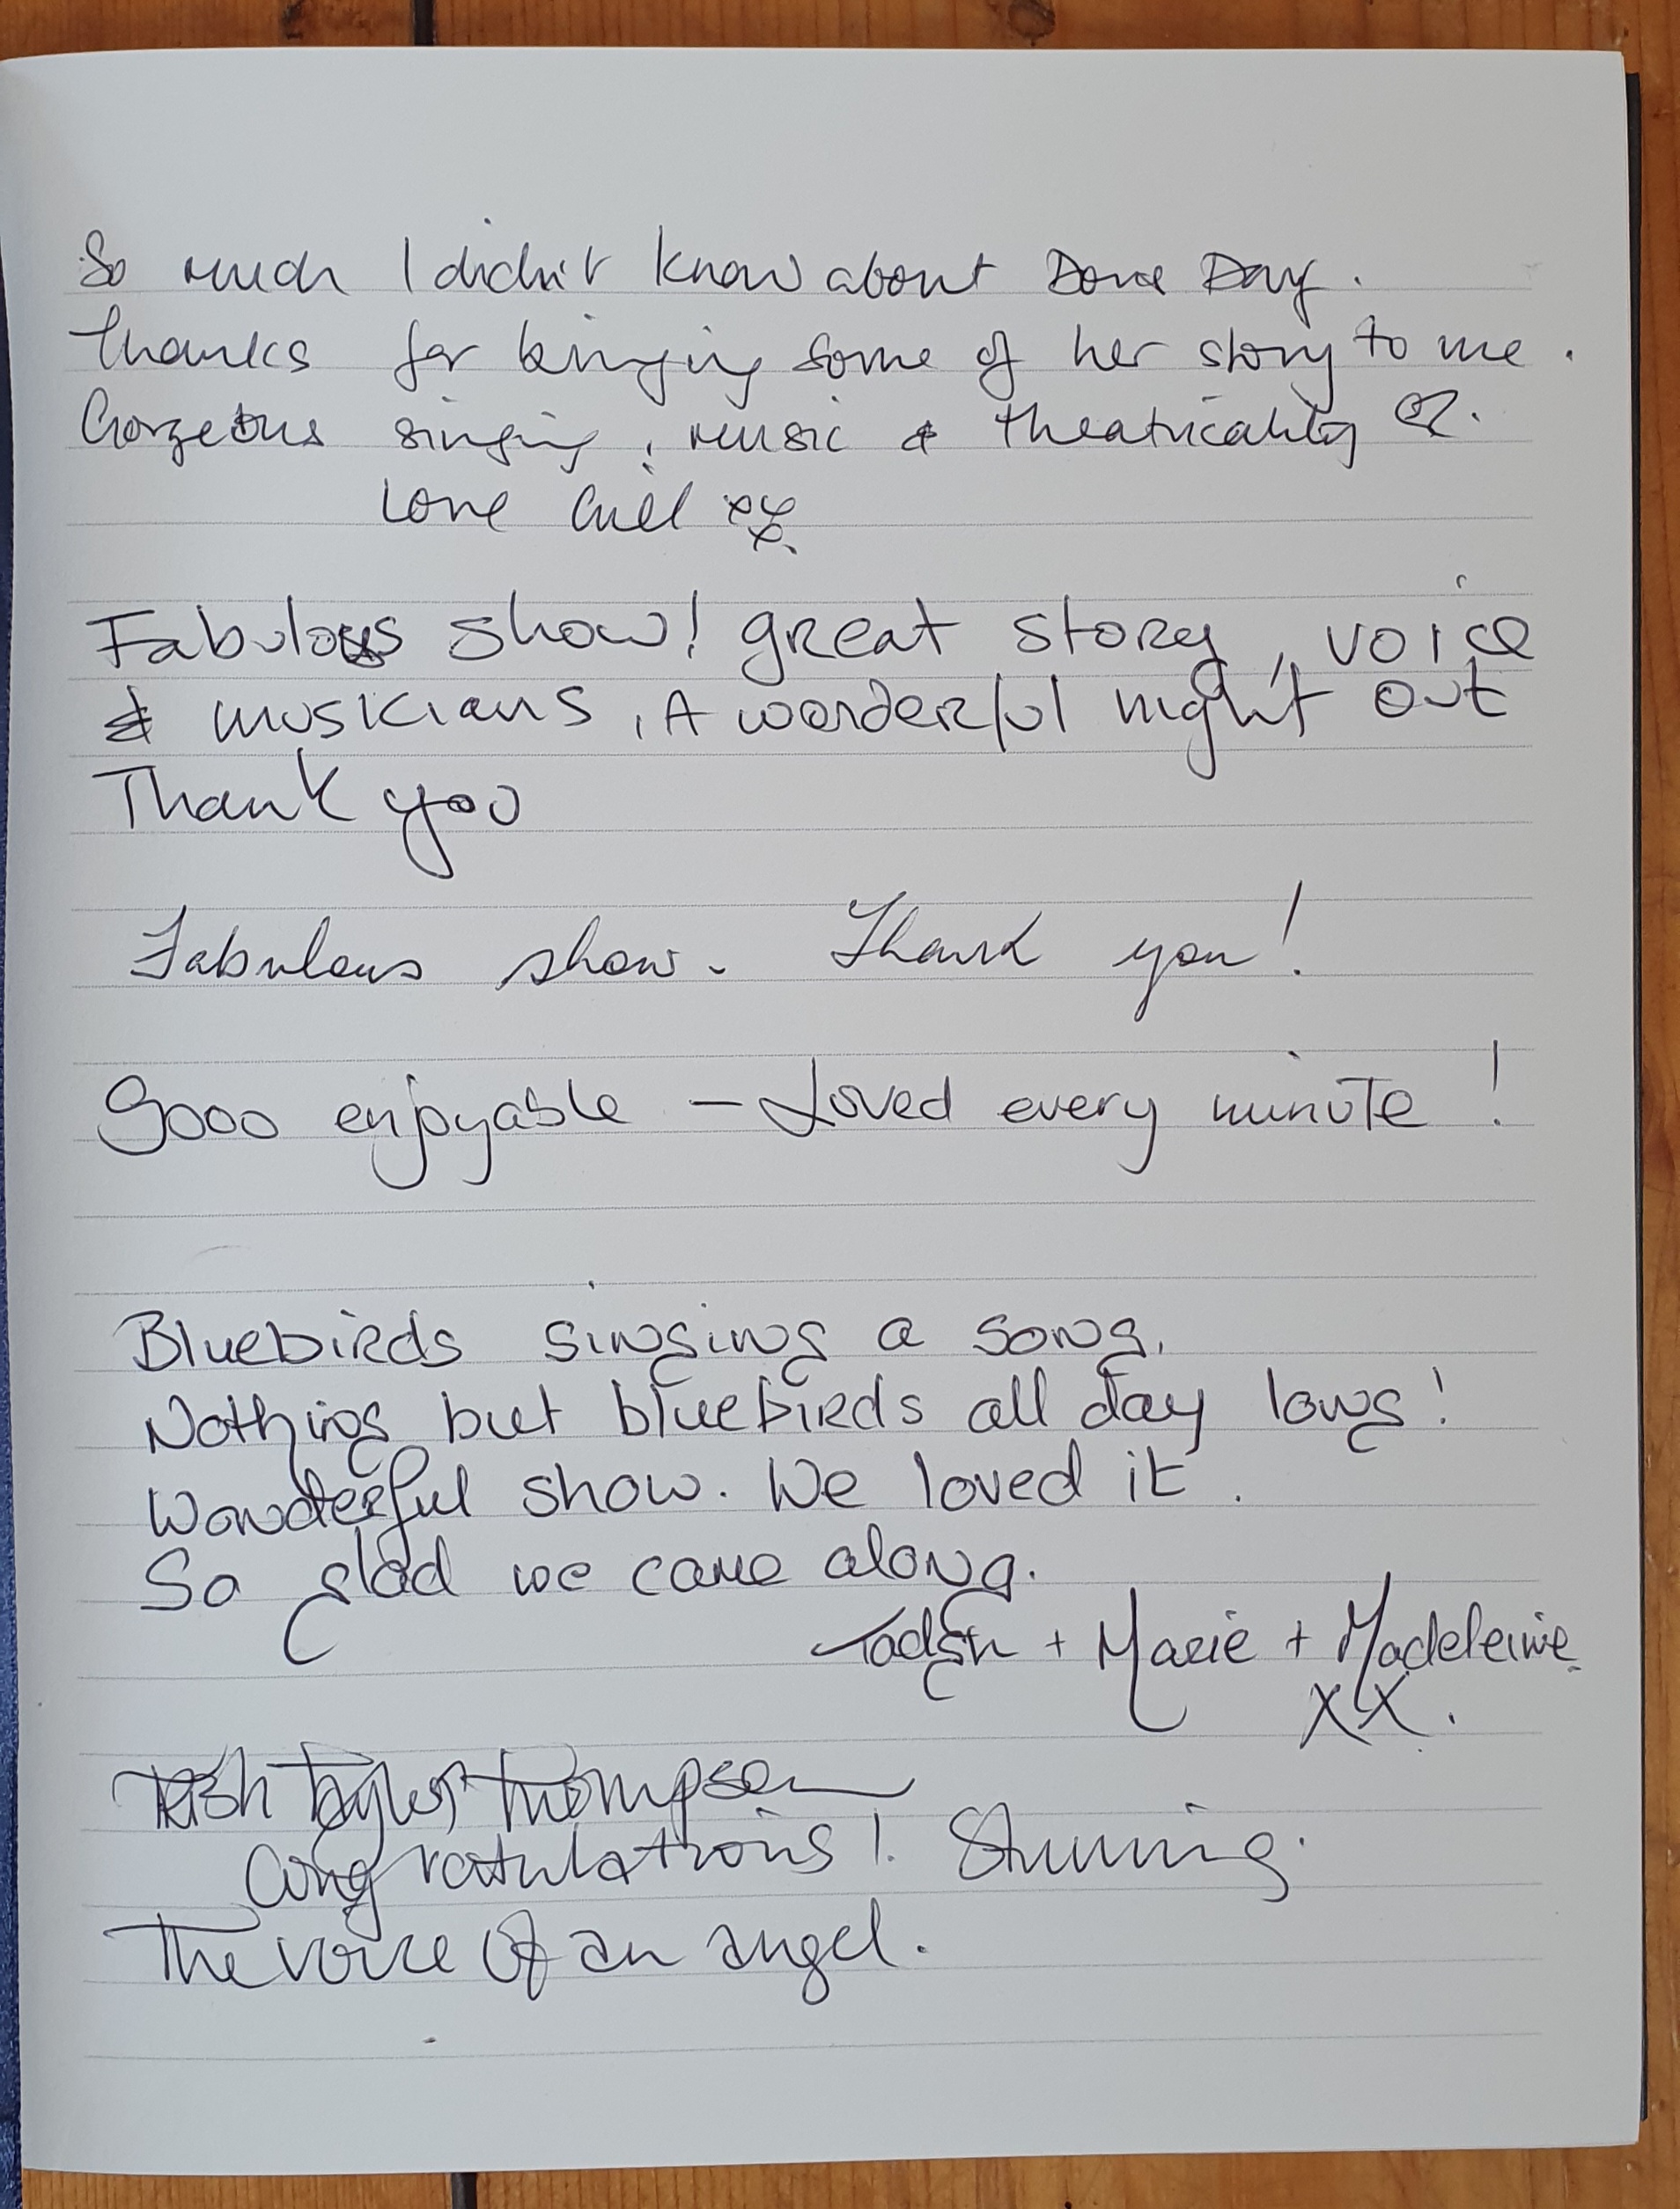 So much I didn't know about Doris Day.
Thanks for bringing some of her story to me.
Gorgeous singing, music & theatricality
Love Gill xx
Fabulous show! great story, voice
& musicians, A wonderful night out
Thank you
Fabulous show. Thank you!
Sooo enjoyable – Loved every minute!
Bluebirds singing a song,
Nothing but bluebirds all day long!
Wonderful show. We loved it.
So glad we came along.
Tadgh + Marie + Madeleine
xx.
Trish Taylor Thompson
Congratulations! Stunning.
The voice of an angel.